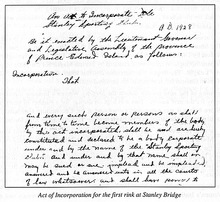 An Act to Incorporate the
Stanley Sporting Club.
A.D. 1928
Be it enacted by the Lieutenant Governor
and Legislative Assembly of the province
of Prince Edward Island as follows:
Incorporation.
That
and every such person or persons as shall
from time to time become members of the body
by this act incorporated, shall be and are hereby
constituted and declared to be a body corporate
under and by the name of the Stanley Sporting
Club and under and by that name shall or
may be sued
answered and be answered unto in all the courts
of law whatsoever and shall have power to
Act of Incorporation for the first rink at Stanley Bridge